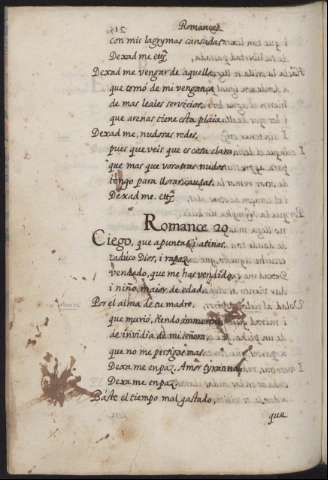 Romances
con mis lagrymas cansadas
Dexad me etc.
Dexad me vengar de aquella
que tomo de mi vengança
de mas leales servicios,
que arenas tiene esta plaia
Dexad me, nudosas redes,
pues que veis que es cosa clara
que mas que vosotras nudos
tengo para llorar causas.
Dexad me. etc.
Romance 29
Ciego, que apuntas, i atinas,
caduco Dios, i rapaz
vendado, que me has vendido,
i niño, maior de edad.
Por el alma de tu madre,
que murió, siendo immortal
de invidia de mi señora,
que no me persigas mas.
Dexa me en paz, Amor tyranno,
Dexa me en paz.
Baste el tiempo mal gastado,
que